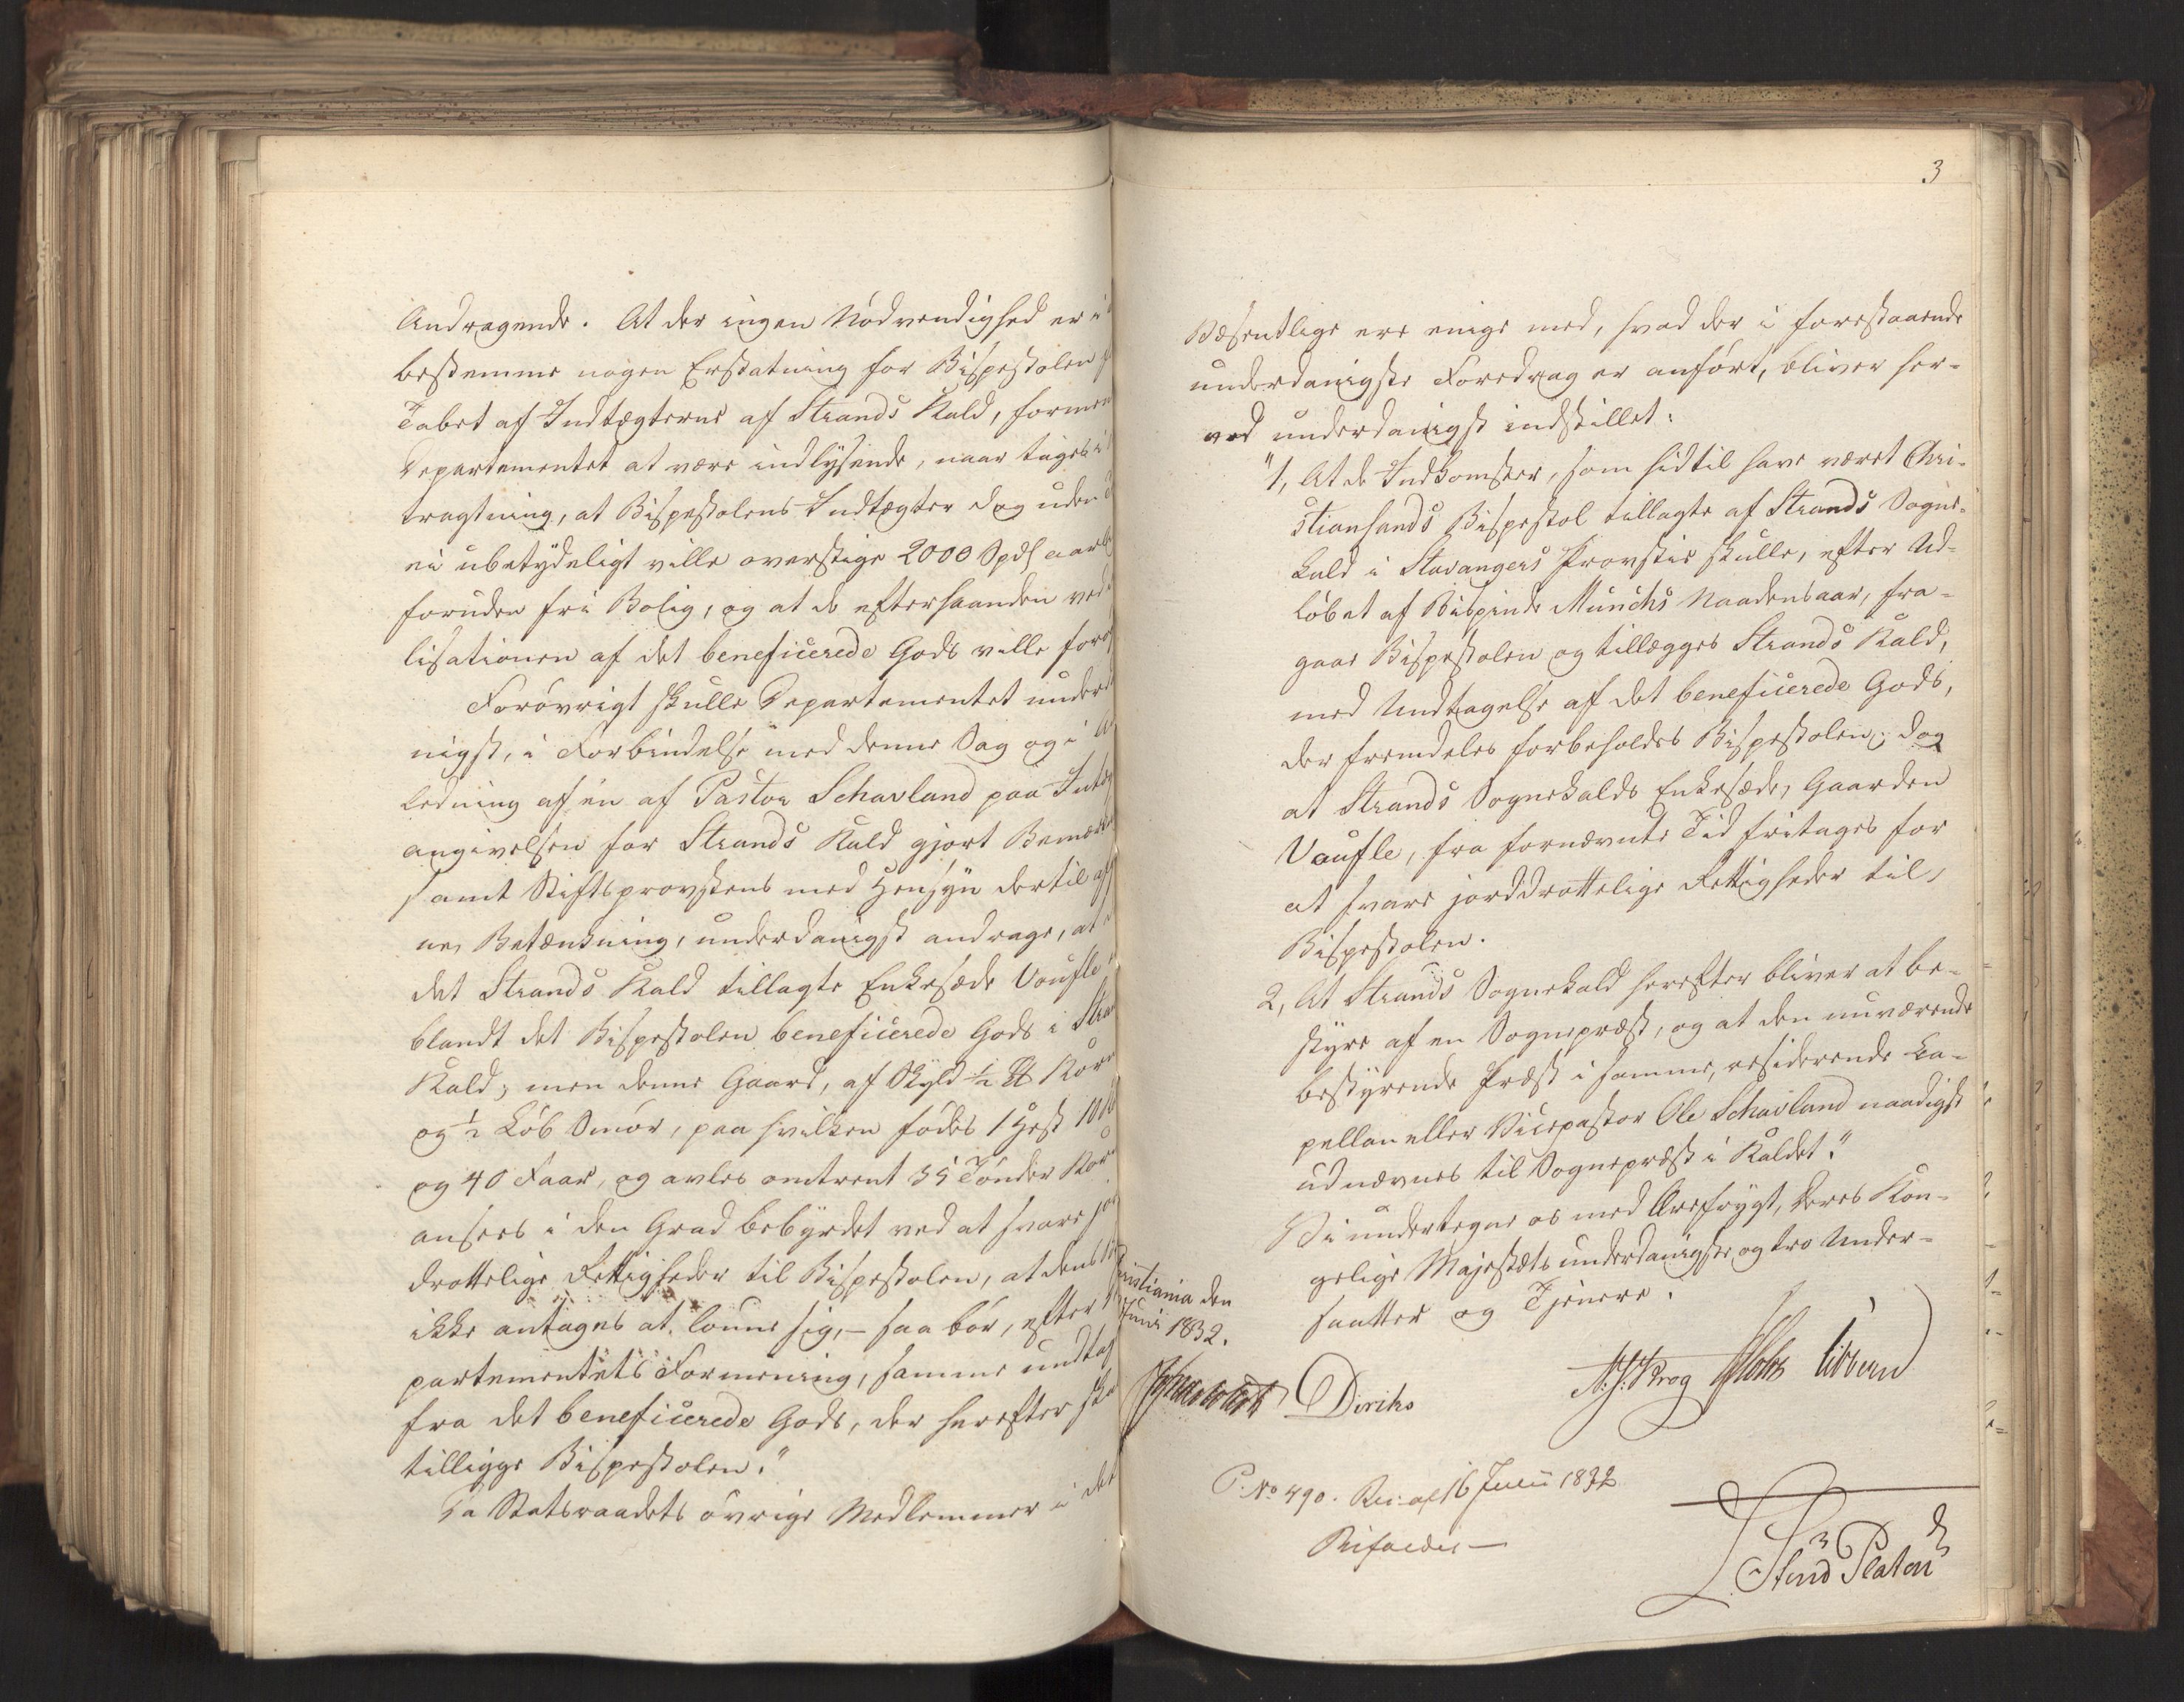 Andragende. At der ingen Nödvendighed er i
bestemme nogen Erstatning for Bispestolen
Tabet af Indtægterne af Strands Kald, formen
Departementet at være indlysende, naar tages i
tragtning, at Bispestolens Indtægter dog uden
ei ubetydeligt ville overstige 2000 Spd aarl
foruden fri Bolig, og at de efterhaanden ved
lisationen af det beneficerede Gods ville for
Forövrigt skulle Departementet underd
nigst, i Forbindelse med denne Sag og i
ledning af en af Pastor Schavland paa Indtæg
angivelsen for Strands Kald gjort Bemærk
samt Stiftsprovstens med Hensyn dertil af
ne Betænkning, underdanigst andrage, at
det Strands Kald tillagte Enkesæde Voufle
blandt det Bispestolen beneficerede Gods i Stra
Kald; men denne Gaard, af Skyld ½ Korn
og ½ Löb Smör, paa hvilken födes 1 Hest 10
og 40 Faar, og avles omtrent 35 Tönder Kor
ansees i den Grad bebyrdet ved at svare jor
drottelige Rettigheder til Bispestolen, at dens
ikke antages at lönne sig, – saa bör, efter
partementets Formening, samme undtag
fra det beneficerede Gods, der herefter sk
tilligge Bispestolen."
Da Statsraadets övrige Medlemmer i det
3
Væsentlige ere enige med, hvad der i forestaaende
underdanigste Foredrag er anfört, bliver her-
ved underdanigst indstillet:
"1, At de Indkomster, som hidtil have været Chri-
stiansands Bispestol tillagte af Strands Sogne-
kald i Stavangers Provstie skulle, efter Ud-
löbet af Bispinde Münchs Naadensaar, fra-
gaae Bispestolen og tillægges Strands Kald,
med Undtagelse af det beneficerede Gods,
der fremdeles forbeholdes Bispestolen; dog
at Strands Sognekalds Enkesæde, Gaarden
Voufle, fra fornævnte Tid fritages for
at svare jorddrottelige Rettigheder til
Bispestolen.
2, At Strands Sognekald herefter bliver at be-
styre af en Sognepræst, og at den nuværende
bestyrende Præst i samme, residerende Ca-
pellan eller Vicepastor Ole Schavland naadigst
udnævnes til Sognepræst i Kaldet."
Vi undertegne os med Ærefrygt, Deres Kon-
gelige Majestæts underdanigste og tro Under-
saatter og Tjenere.
ristiania den
Juni 1832.
Diriks
N. J. Krog Holst Vibeund
P. No 490. Res: af 16 Julii 1832
Stud Platou